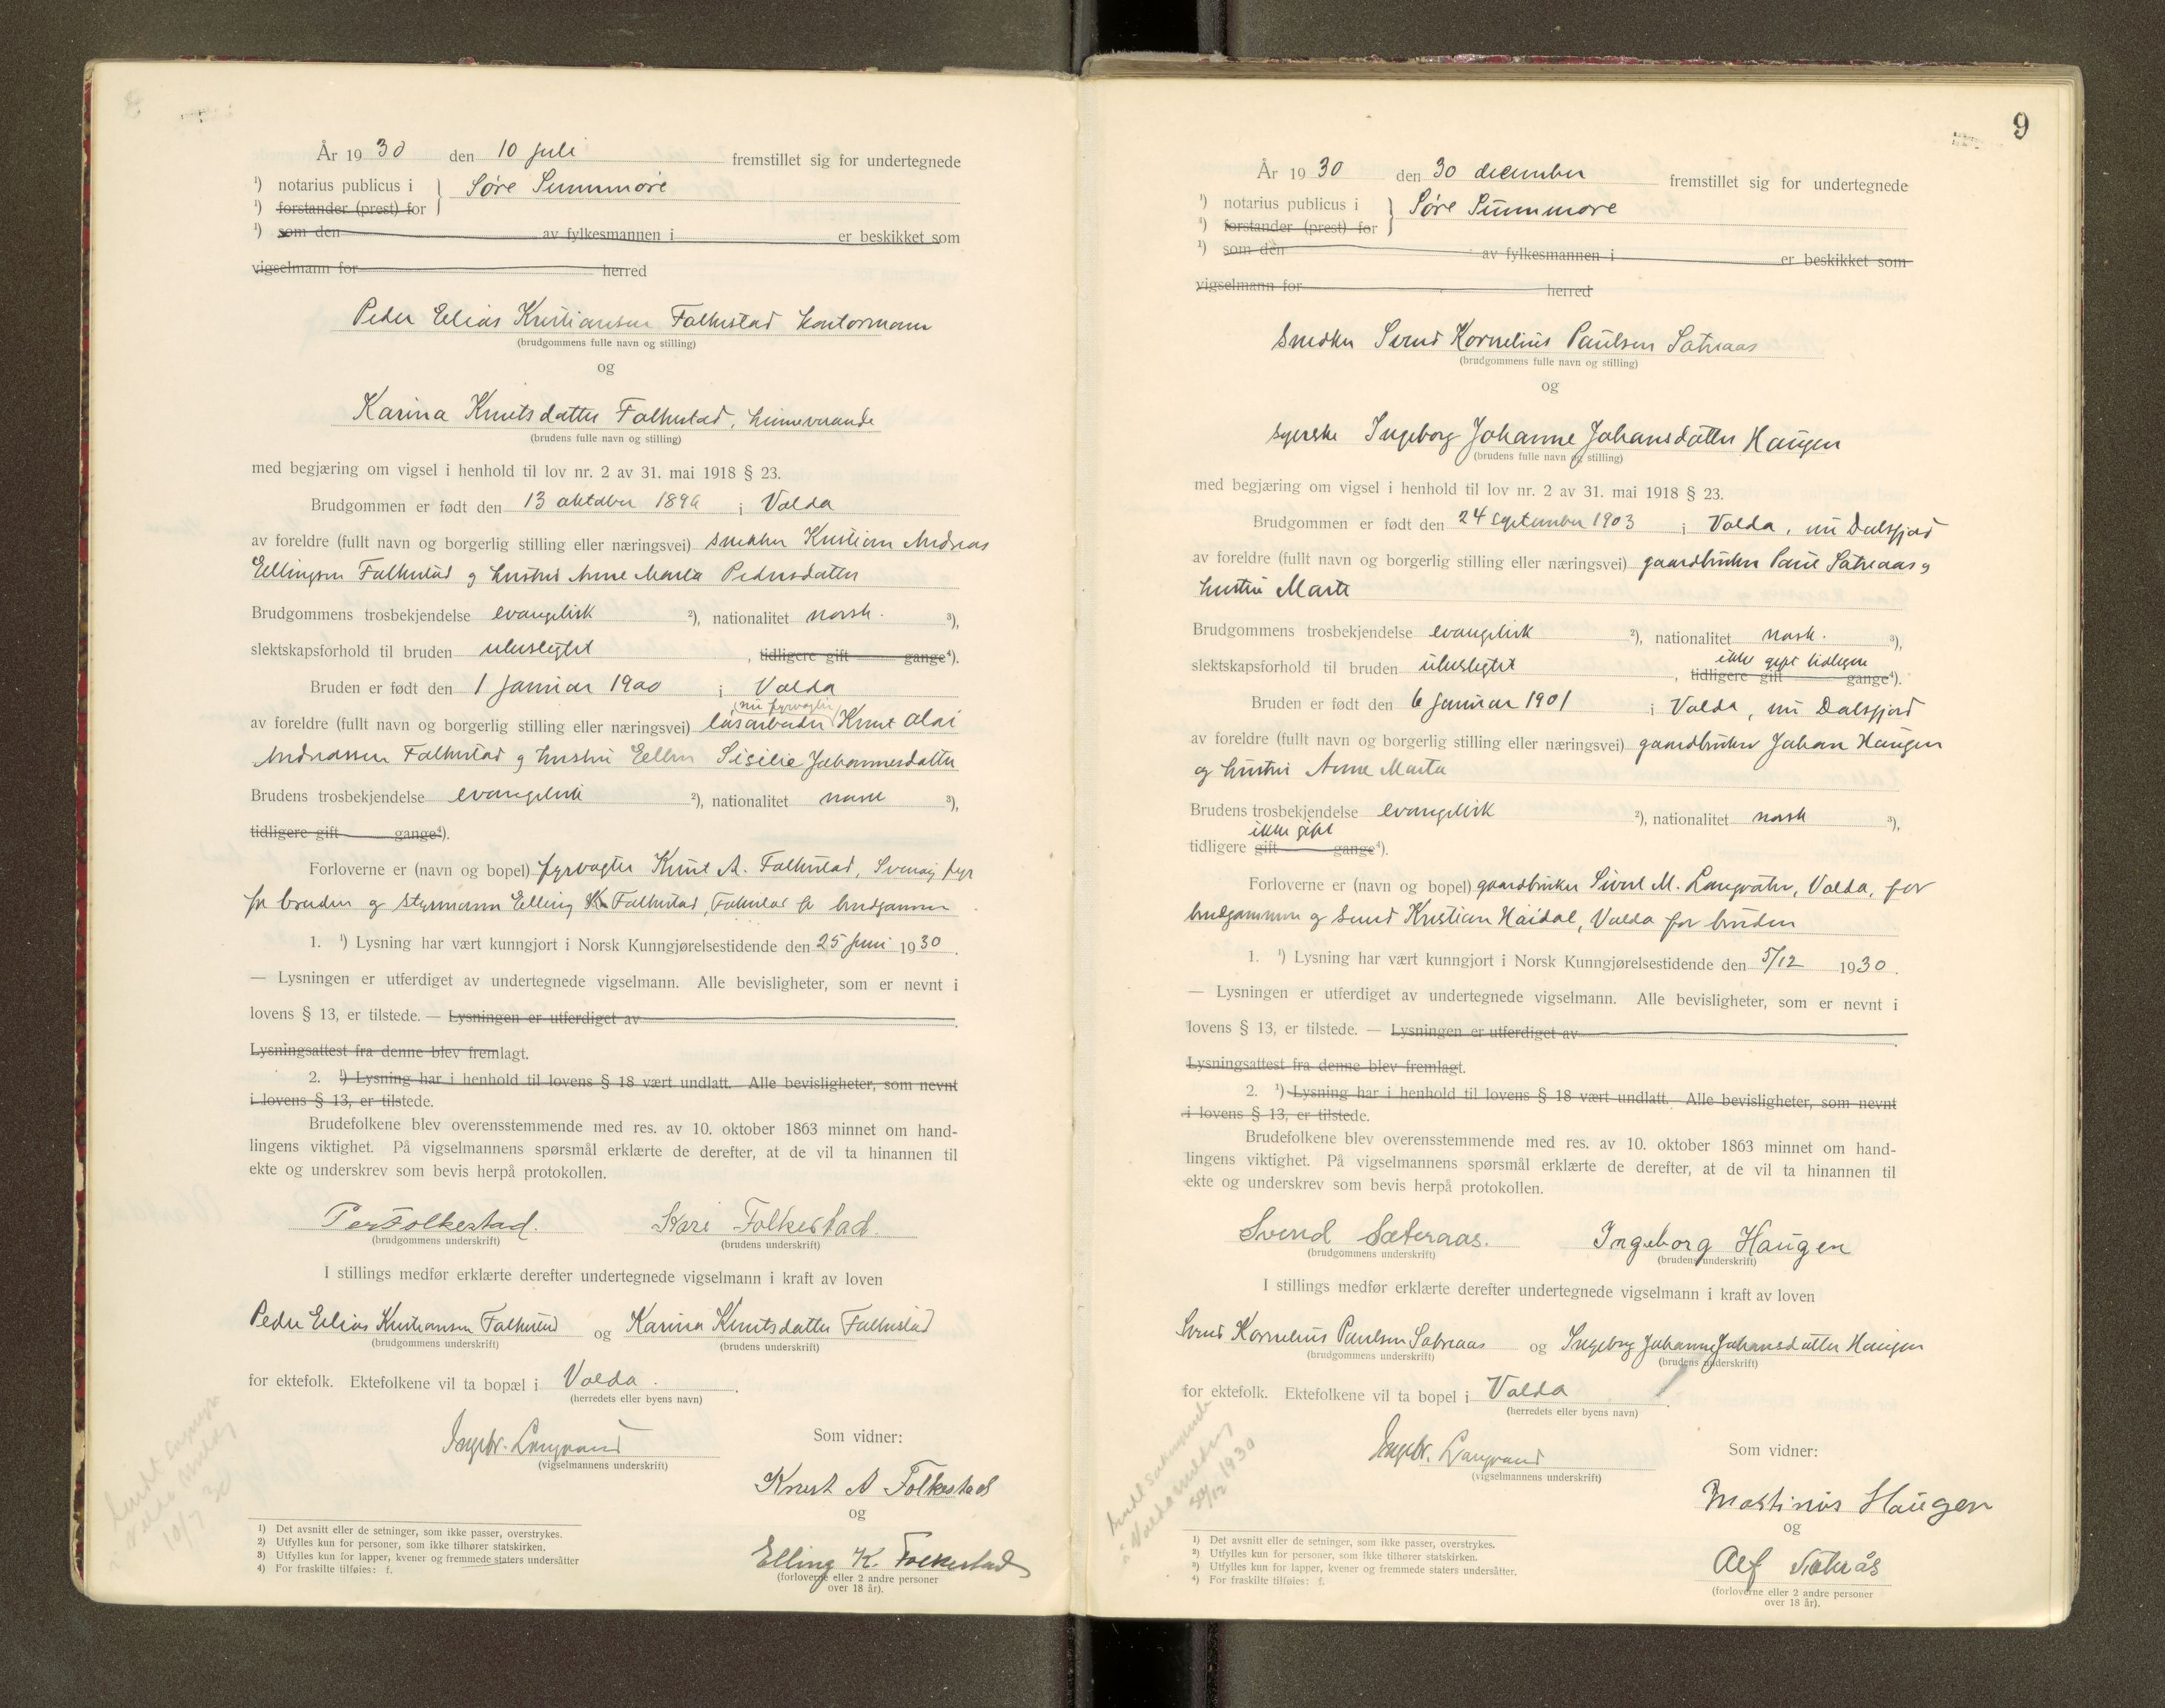 År 1930 den 10 juli fremstillet sig for undertegnede
¹) notarius publicus i } Søre Sunnmøre
¹) forstander (prest) for
¹) som den av fylkesmannen i er beskikket som
vigselmann for herred
Peder Elias Kristiansen Folkestad kontormann
(brudgommens fulle navn og stilling)
og
Karina Knutsdatter Folkestad, heimeverande
(brudens fulle navn og stilling)
med begjæring om vigsel i henhold til lov nr. 2 av 31. mai 1918 § 23.
Brudgommen er født den 13 oktober 1896 i Volda
av foreldre (fullt navn og borgerlig stilling eller næringsvei) snekker Kristian Andreas
Ellingsen Folkestad og hustru Anne Marta Pedersdatter
Brudgommens trosbekjendelse evangelisk ²), nationalitet norsk. ³),
slektskapsforhold til bruden ubeslegtet , tidligere gift gange⁴).
Bruden er født den 1 januar 1900 i Volda
(nu fyrvogter)
av foreldre (fullt navn og borgerlig stilling eller næringsvei) løsarbeider Knut Olai
Andreassen Folkestad og hustru Ellen Sisilie Johannesdatter
Brudens trosbekjendelse evangelisk ²), nationalitet norsk ³),
tidligere gift gange⁴).
Forloverne er (navn og bopel) fyrvogter Knut A. Folkestad, Svinøy fyr
for bruden og styrmann Elling K Folkestad, Folkestad for brudgommen
1. ¹) Lysning har vært kunngjort i Norsk Kunngjørelsestidende den 25 juni 1930.
— Lysningen er utferdiget av undertegnede vigselmann. Alle bevisligheter, som er nevnt i
lovens § 13, er tilstede. — Lysningen er utferdiget av
Lysningsattest fra denne blev fremlagt.
2. ¹) Lysning har i henhold til lovens § 18 vært undlatt. Alle bevisligheter, som nevnt
i lovens § 13, er tilstede.
Brudefolkene blev overensstemmende med res. av 10. oktober 1863 minnet om hand-
lingens viktighet. På vigselmannens spørsmål erklærte de derefter, at de vil ta hinannen til
ekte og underskrev som bevis herpå protokollen.
Per Folkestad. Kari Folkestad.
(brudgommens underskrift) (brudens underskrift)
I stillings medfør erklærte derefter undertegnede vigselmann i kraft av loven
Peder Elias Kristiansen Folkestad og Karina Knutsdatter Folkestad
(brudgommens underskrift) (brudens underskrift)
for ektefolk. Ektefolkene vil ta bopæl i Volda.
(herredets eller byens navn)
Ingbr. Langvand
(vigselmannens underskrift)
Som vidner:
Knut A Folkestad
og
Elling K. Folkestad
(forloverne eller 2 andre personer
over 18 år).
10/7 30
1) Det avsnitt eller de setninger, som ikke passer, overstrykes.
2) Utfylles kun for personer, som ikke tilhører statskirken.
3) Utfylles kun for lapper, kvener og fremmede staters undersåtter
4) For fraskilte tilføies: f.
9
År 1930 den 30 december fremstillet sig for undertegnede
¹) notarius publicus i } Søre Sunnmøre
¹) forstander (prest) for
¹) som den av fylkesmannen i er beskikket som
vigselmann for herred
Snedker Svend Kornelius Paulsen Sætreaas
(brudgommens fulle navn og stilling)
og
syerske Ingeborg Johanne Johansdatter Haugen
(brudens fulle navn og stilling)
med begjæring om vigsel i henhold til lov nr. 2 av 31. mai 1918 § 23.
Brudgommen er født den 24 september 1903 i Volda, nu Dalsfjord
av foreldre (fullt navn og borgerlig stilling eller næringsvei) gaardbruker Paul Sætreaas og
hustru Marte
Brudgommens trosbekjendelse evangelisk ²), nationalitet norsk. ³),
ikke gift tidligere
slektskapsforhold til bruden ubeslegtet , tidligere gift gange⁴).
Bruden er født den 6 januar 1901 i Volda, nu Dalsfjord
av foreldre (fullt navn og borgerlig stilling eller næringsvei) gaardbruker Johan Haugen
og hustru Anne Marta
Brudens trosbekjendelse evangelisk ²), nationalitet norsk ³),
ikke gift
tidligere gift gange⁴).
Forloverne er (navn og bopel) gaardbruker Sivert M. Langvatn, Volda, for
brudgommen og Svend Kristian Høidal, Volda for bruden
1. ¹) Lysning har vært kunngjort i Norsk Kunngjørelsestidende den 5/12 1930.
— Lysningen er utferdiget av undertegnede vigselmann. Alle bevisligheter, som er nevnt i
lovens § 13, er tilstede. — Lysningen er utferdiget av
Lysningsattest fra denne blev fremlagt.
2. ¹) Lysning har i henhold til lovens § 18 vært undlatt. Alle bevisligheter, som nevnt
i lovens § 13, er tilstede.
Brudefolkene blev overensstemmende med res. av 10. oktober 1863 minnet om hand-
lingens viktighet. På vigselmannens spørsmål erklærte de derefter, at de vil ta hinannen til
ekte og underskrev som bevis herpå protokollen.
Svend Sæteraas. Ingeborg Haugen
(brudgommens underskrift) (brudens underskrift)
I stillings medfør erklærte derefter undertegnede vigselmann i kraft av loven
Svend Kornelius Paulsen Sætreaas og Ingeborg Johanne Johansdatter Haugen
(brudgommens underskrift) (brudens underskrift)
for ektefolk. Ektefolkene vil ta bopel i Volda.
(herredets eller byens navn)
Ingbr. Langvand
(vigselmannens underskrift)
Som vidner:
Martinus Haugen
og
Alf Sætrås
(forloverne eller 2 andre personer
over 18 år).
30/12 1930
1) Det avsnitt eller de setninger, som ikke passer, overstrykes.
2) Utfylles kun for personer, som ikke tilhører statskirken.
3) Utfylles kun for lapper, kvener og fremmede staters undersåtter.
4) For fraskilte tilføies: f.